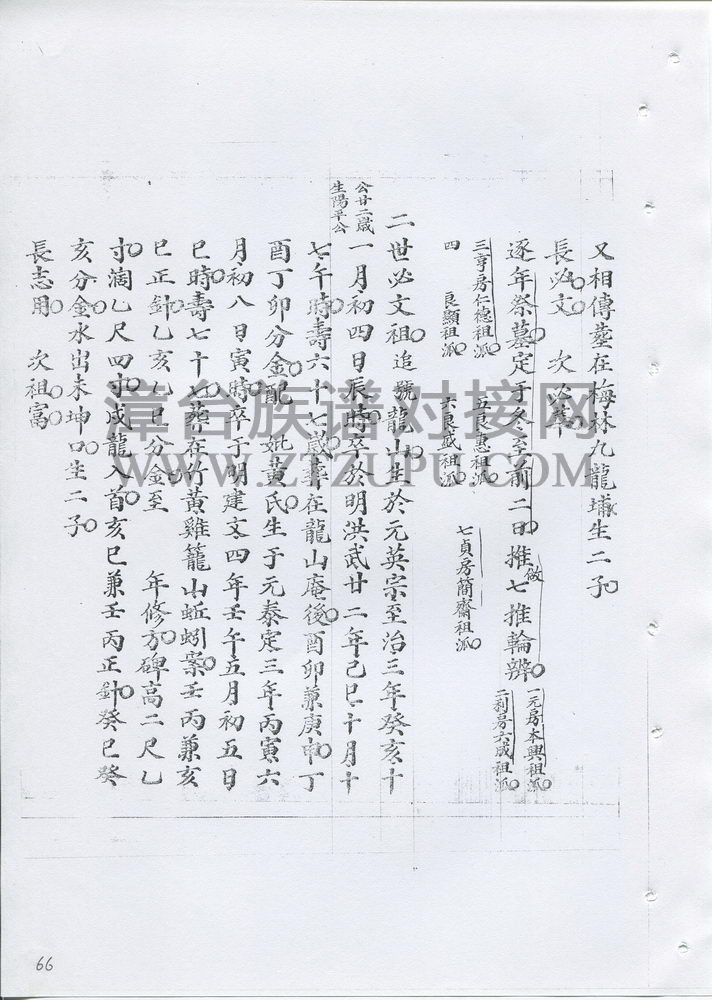 又相傳塟在梅林九龍埔生二子
長必文 次必華
逐年祭墓定于冬至前二日推七推輪辦
做
一元房本興祖派
二利房六成祖派
三亨房仁德祖派
四 良顯祖派
五良惠祖派
六良戚祖派
七貞房簡齋祖派
二世必文祖追號龍山生於元英宗至治三年癸亥十
公廿二歲
生陽平公
一月初四日辰時卒於明洪武廿二年己巳十月十
七午時壽六十七歲葬在龍山庵後酉卯兼庚申丁
酉丁卯分金配 妣黄氏生于元泰定三年丙寅六
月初八日寅時卒于明建文四年壬午五月初五日
巳時壽七十七葬在竹黃雞籠山蚯蚓案壬丙兼亥
巳正針乙亥乙巳分金至 年修方碑高二尺乙
寸濶乙尺四寸戍龍入首亥巳兼壬丙正針癸巳癸
亥分金水出未坤口生二子
長志用 次祖富
漳台族谱对接网
WWW.ZTZUPU.COM
66